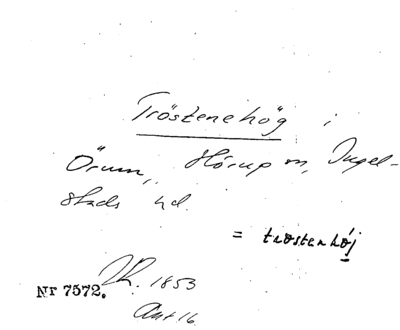 Tröstenehög i
Örum, Hörup m, Ingel-
stads hd.
= trostenhöj
Nr 7572.
R. 1853
Ant 16